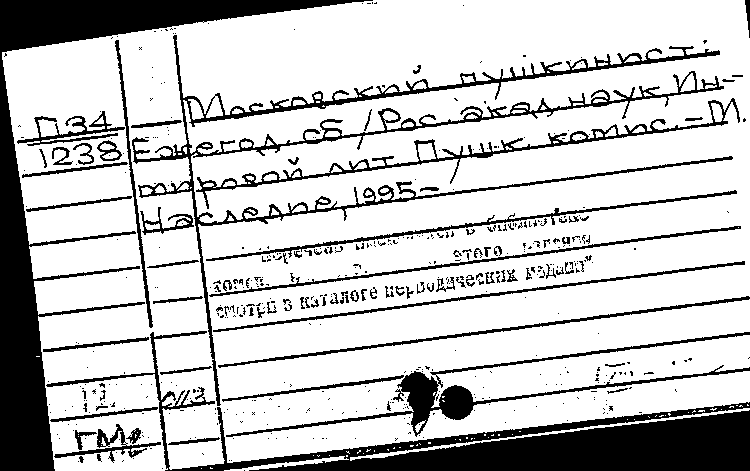 Московский пушкинист:
П34
1238
Ежегод. сб / Рос. акад. наук, Ин-
мировой лит. Пушк. комис. – М.
Наследие, 1995–
Перечень в библиотеке
этого издания
смотри в каталоге периодических изданий"
12
ГМв